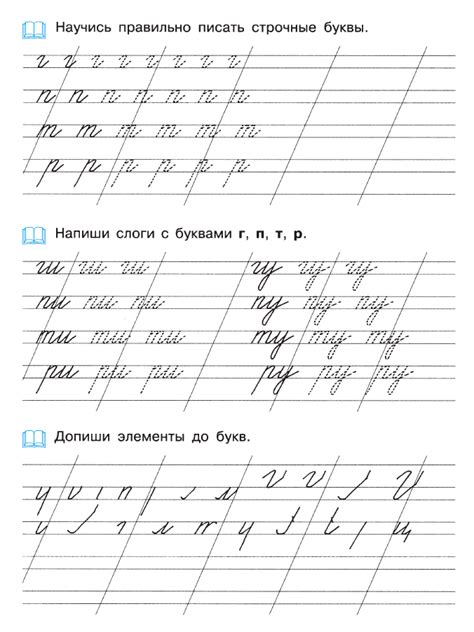 Научись правильно писать строчные буквы.
г г г г г г г г
п п п п п п п
т т т т т т
р р р р р р
Напиши слоги с буквами г, п, т, р.
ги ги ги гу гу гу
пи пи пи пу пу пу
ти ти ти ту ту ту
ри ри ри ру ру ру
Допиши элементы до букв.